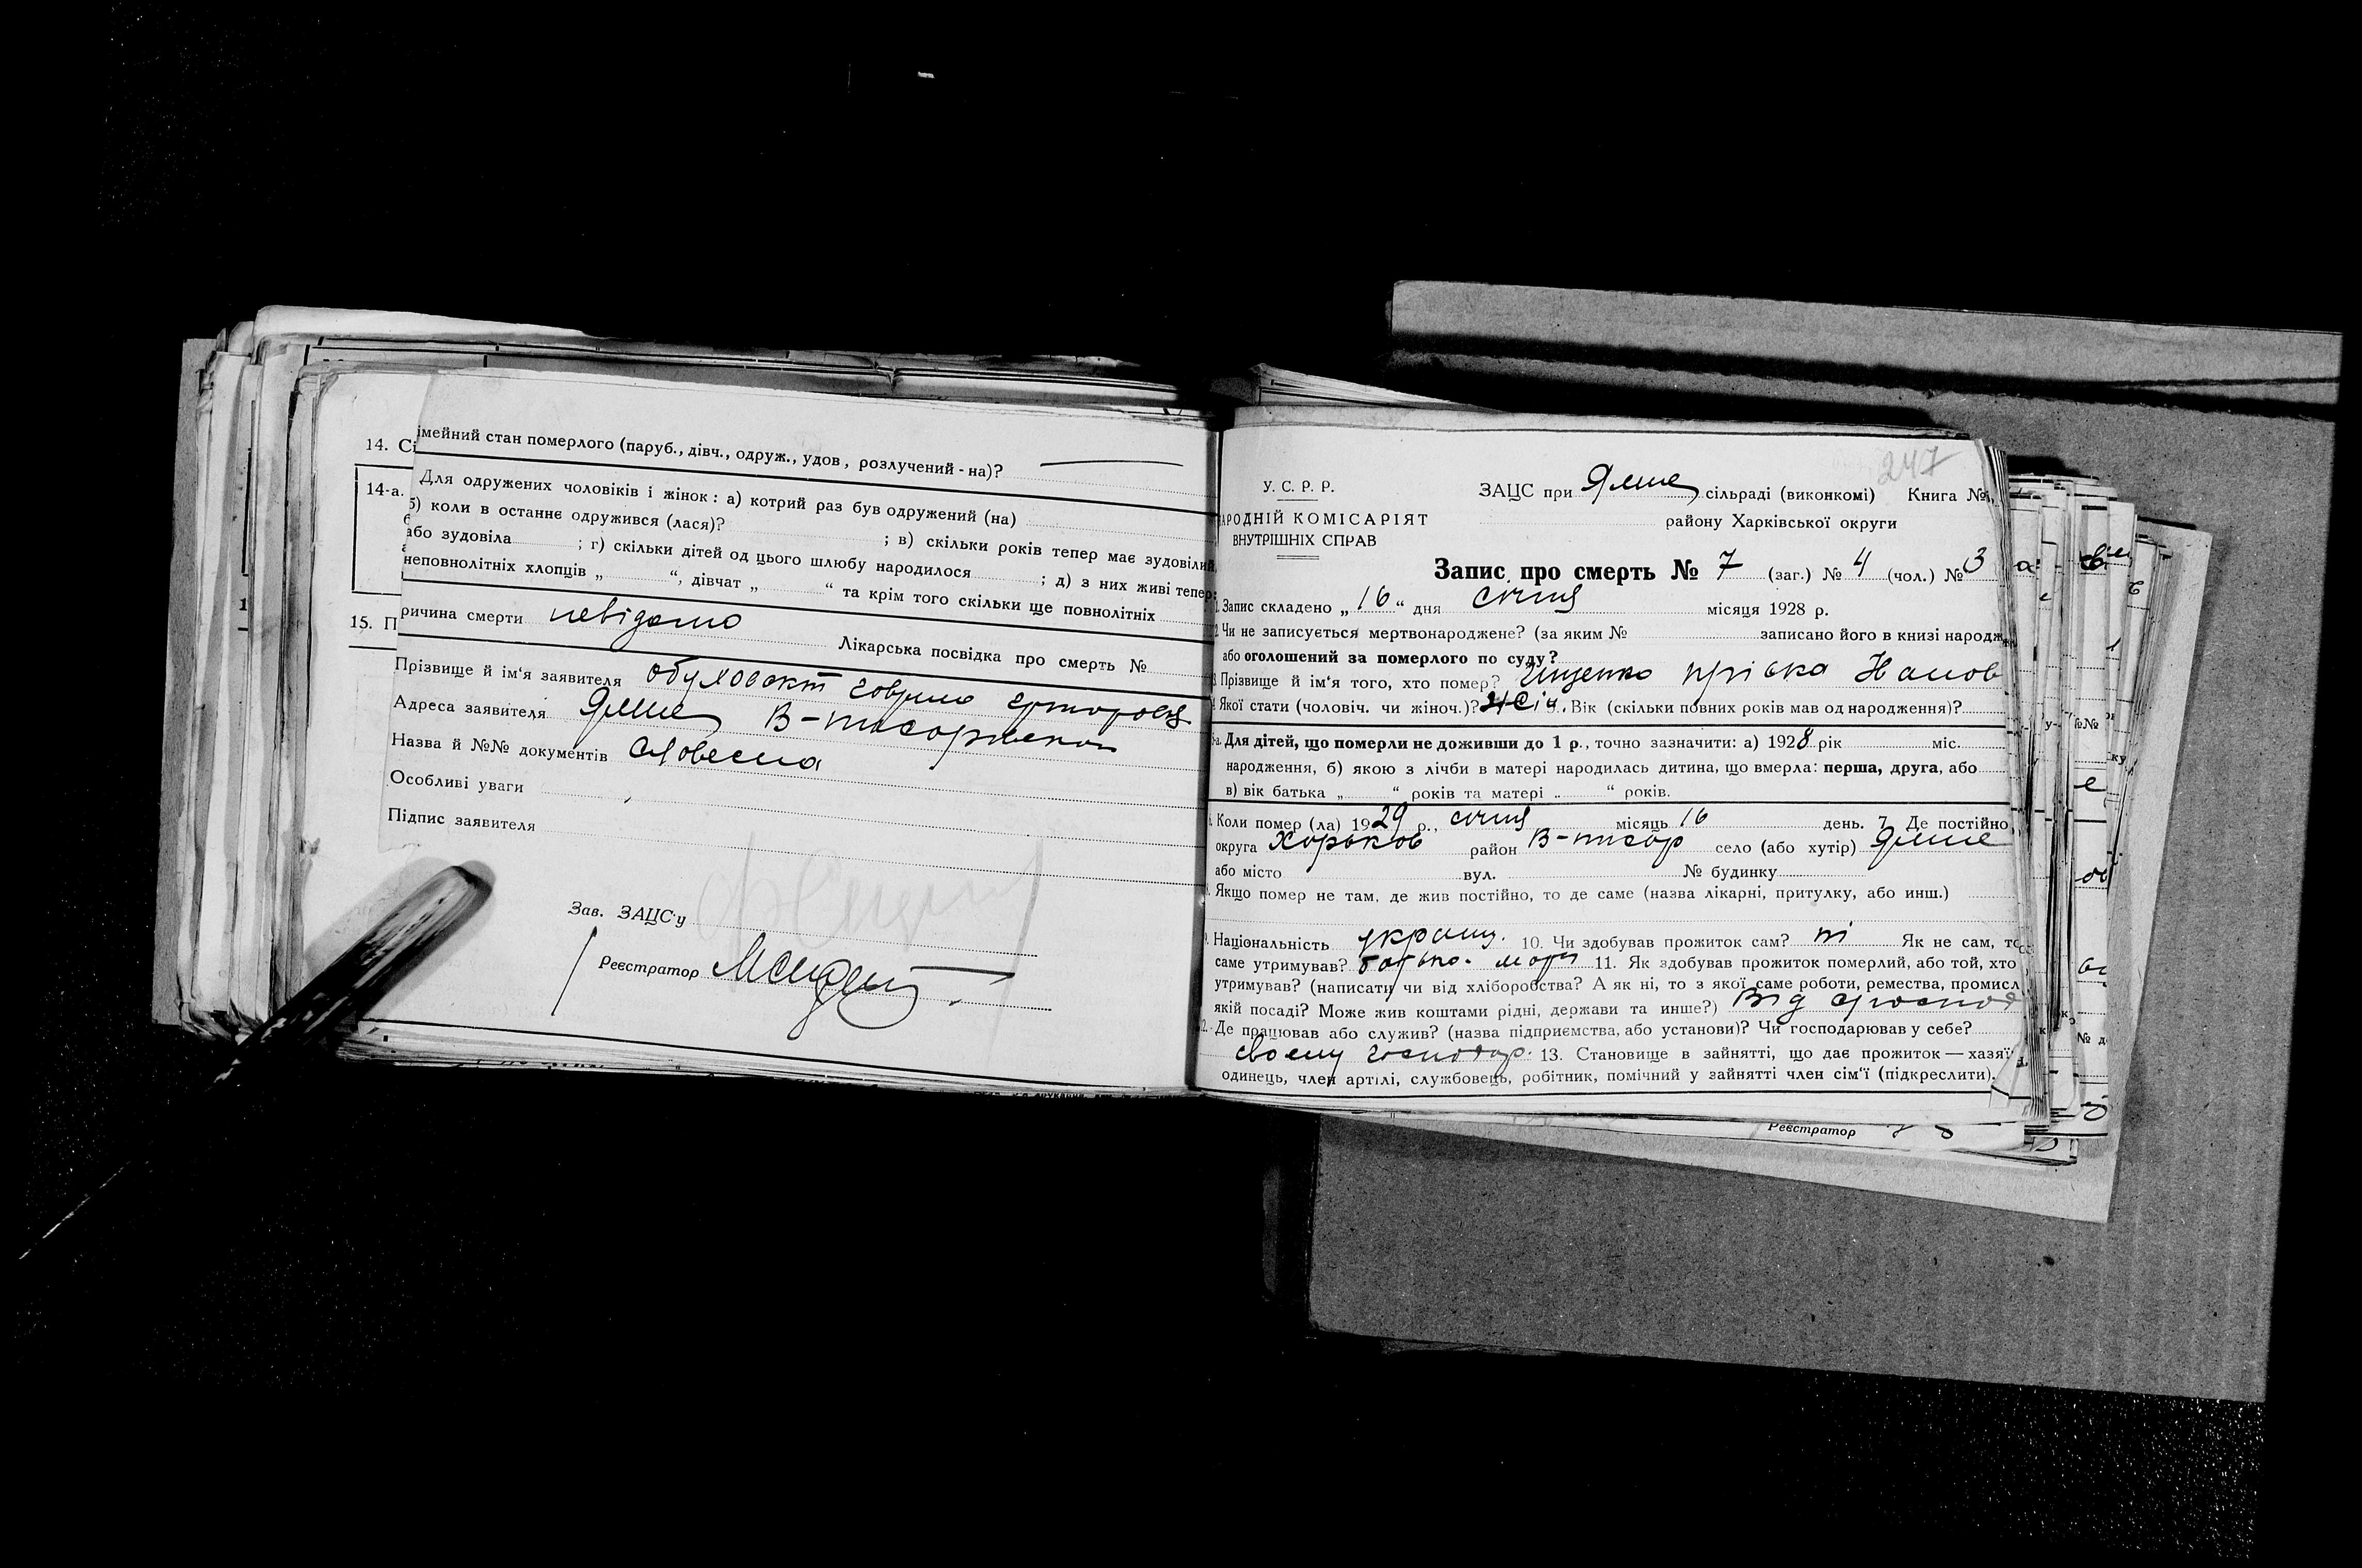 14. Сі
імейний стан померлого (паруб., дівч., одруж., удов, розлучений-на)?
14-а.
Для одружених чоловіків і жінок: а) котрий раз був одружений (на)
б) коли в останнє одружився (лася)? ; в) скільки років тепер має зудовілий,
або зудовіла ; г) скільки дітей од цього шлюбу народилося ; д) з них живі тепер:
неповнолітніх хлопців „ “, дівчат „ “ та крім того скільки ще повнолітніх
15. П
ричина смерти невідомо Лікарська посвідка про смерть №
Прізвище й ім'я заявителя
Адреса заявителя В-писаревском
Назва й №№ документів словесна
Особливі уваги
Підпис заявителя
Зав. ЗАЦС'у
Реєстратор
247
У. С. Р. Р.
АРОДНІЙ КОМІСАРІЯТ
ВНУТРІШНІХ СПРАВ
ЗАЦС при Ямне сільраді (виконкомі) Книга №
району Харківської округи
Запис про смерть № 7 (заг.) № 4 (чол.) № 3
Запис складено „16“ дня січня місяця 1928 р.
Чи не записується мертвонароджене? (за яким № записано його в книзі народж
або оголошений за померлого по суду?
Прізвище й ім'я того, хто помер? Іщенко Пріська
Якої стати (чоловіч. чи жіноч.)? жіч. Вік (скільки повних років мав од народження)?
Для дітей, що померли не доживши до 1 р., точно зазначити: а) 1928 рік міс.
народження, б) якою з лічби в матері народилась дитина, що вмерла: перша, друга, або
в) вік батька „ “ років та матері „ “ років.
Коли помер (ла) 1929 р., січня місяць 16 день. 7. Де постійно
округа Харьков район В-писар село (або хутір) Ямне
або місто вул. № будинку
Якщо помер не там, де жив постійно, то де саме (назва лікарні, притулку, або инш.)
Національність україн. 10. Чи здобував прожиток сам? ні Як не сам, то
саме утримував? батько. 11. Як здобував прожиток померлий, або той, хто
утримував? (написати чи від хліборобства? А як ні, то з якої саме роботи, ремества, промисл
якій посаді? Може жив коштами рідні, держави та инше?) Від
Де працював або служив? (назва підприємства, або установи)? Чи господарював у себе?
своєму господар. 13. Становище в зайнятті, що дає прожиток — хазяї
одинець, член артілі, службовець, робітник, помічний у зайнятті член сім'ї (підкреслити).
Реєстратор